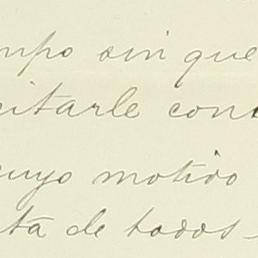 mpo sin que
citarle con
cuyo motivo
ta de todos